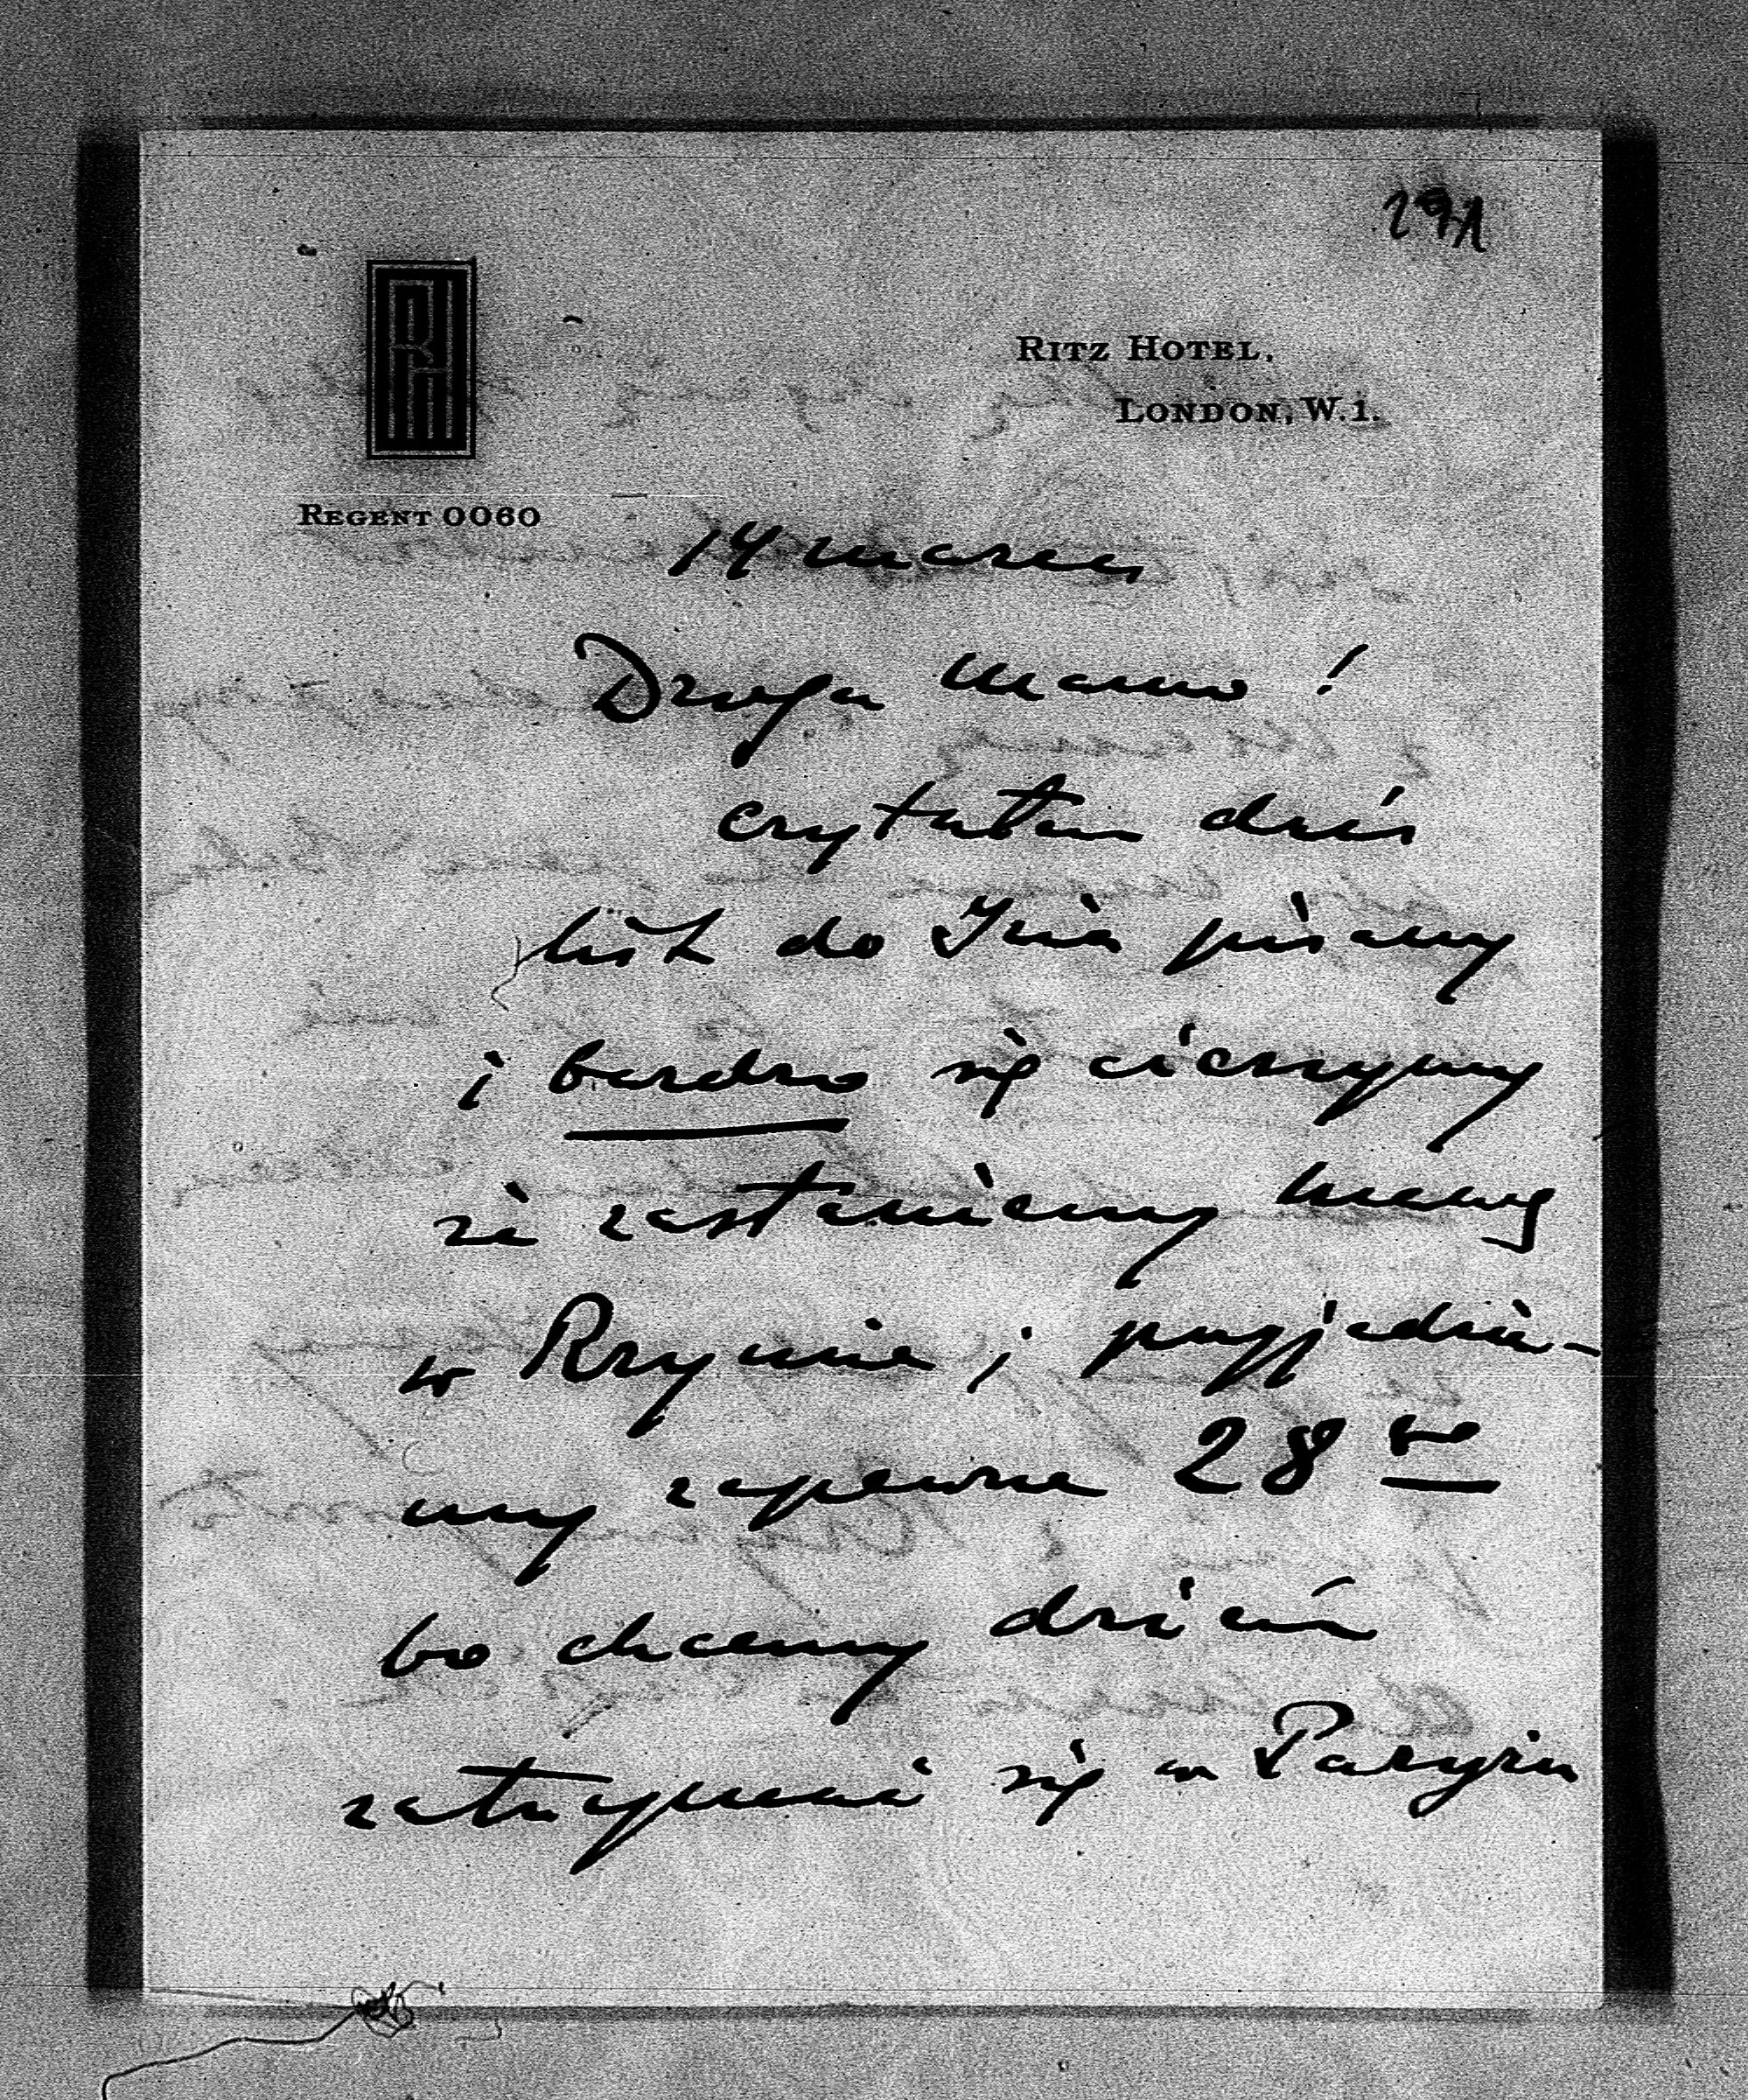 RITZ HOTEL,
LONDON, W.1.
REGENT 0060
14 marca
Droga Mamo!
czytałam dziś
list do Izia pisany
i bardzo się cieszymy
że zastaniemy Mamę
w Rzymie i przyjedzie-
my zapewne 28 go
bo chcemy dzień
zatrzymać się w Paryżu